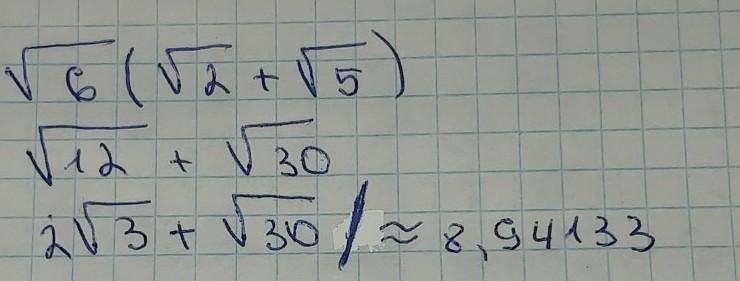 √6 (√2 + √5)
√12 + √30
2√3 + √30 / ≈ 8,94133